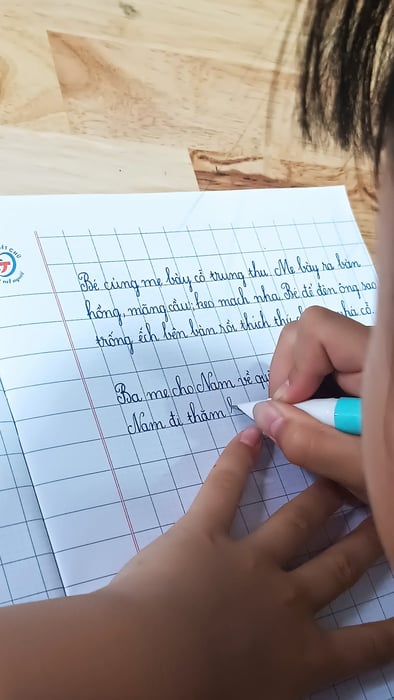 Bé cùng mẹ bày cỗ trung thu. Mẹ bày ra bàn
hồng, mãng cầu, kẹo mạch nha. Bé để đèn ông sao
trống ếch bên bàn rồi thích phá cỗ.
Ba mẹ cho Nam về
Nam đi thăm